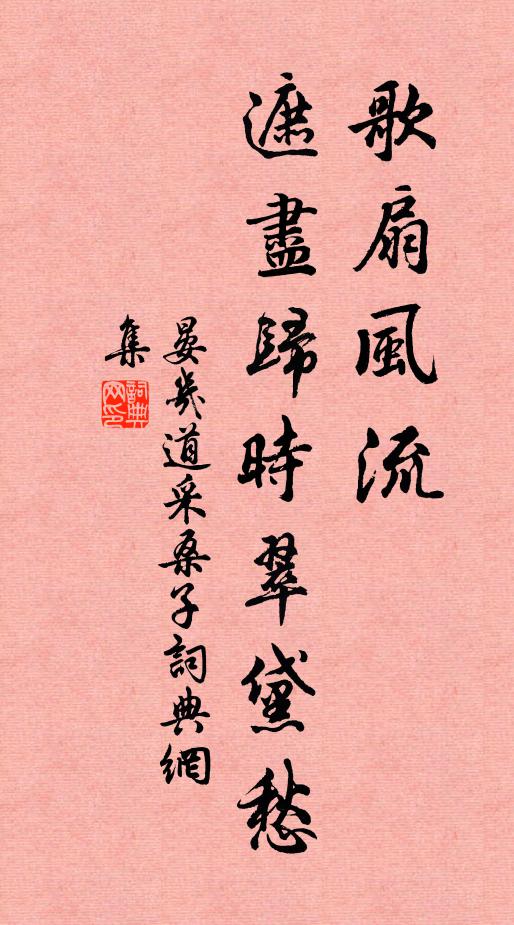 歌扇風流
遮盡歸時翠黛愁
晏幾道采桑子詞典網
集
詞典
网印